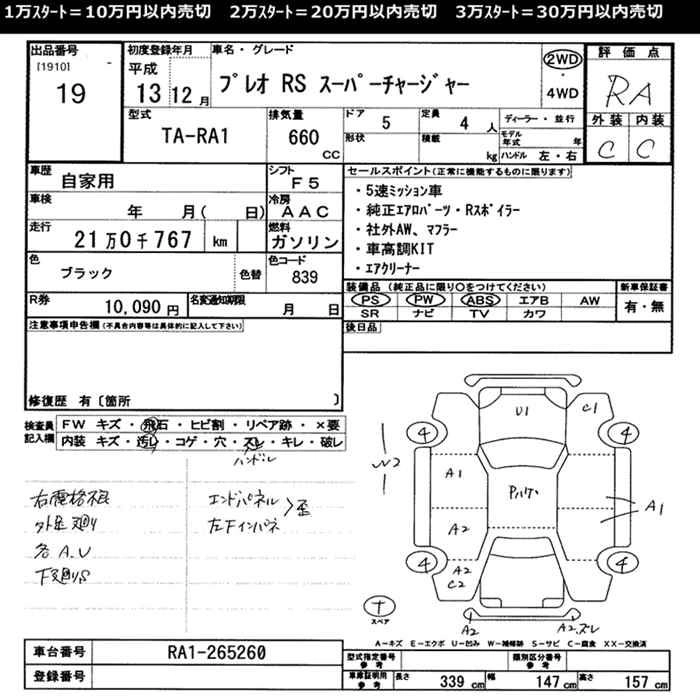 1万ｽﾀｰﾄ＝10万円以内売切　2万ｽﾀｰﾄ＝20万円以内売切　3万ｽﾀｰﾄ＝30万円以内売切
出品番号 初度登録年月 車名・グレード 評価点
[1910] -
19
平成 13 12 月
プレオ RS スーパーチャージャー
2WD ・ 4WD
RA
型式 TA-RA1
排気量 660 CC
ドア 5 定員 4 人
形状 積載 kg
ディーラー・並行
モデル年式 年
ハンドル 左・右
外装 内装
C C
車歴 自家用
シフト F5
車検 年 月( 日)
冷房 AAC
走行 21万0千767 km
燃料 ガソリン
色 ブラック 色替
色コード 839
R券 10,090 円
名変通知期限 月 日
セールスポイント(正常に機能するものに限ります)
・5速ミッション車
・純正エアロパーツ・Rスポイラー
・社外AW、マフラー
・車高調KIT
・エアクリーナー
装備品（純正品に限り○をつけてください）
PS PW ABS エアB AW
SR ナビ TV カワ
新車保証書
有・無
後日品
注意事項申告欄（不具合内容等は具体的に記入して下さい）
修復歴 有〔箇所 〕
検査員記入欄
FW キズ・飛石・ヒビ割・リペア跡・×要
内装 キズ・汚レ・コゲ・穴・スレ・キレ・破レ
ハンドル
エンドパネル
左下インパネ
歪
下廻りS
W2
U1
C1
4
4
A1
Pハゲ
A1
A2
A2
C2
4
4
スペア
A2
A2.ズレ
A－キズ E－エクボ U－凹み W－補修跡 S－サビ C－腐食 XX－交換済
車台番号 RA1-265260
登録番号
型式指定番号 参考
類別区分番号 参考
車庫証明用 参考
長さ 339 cm 幅 147 cm 高さ 157 cm